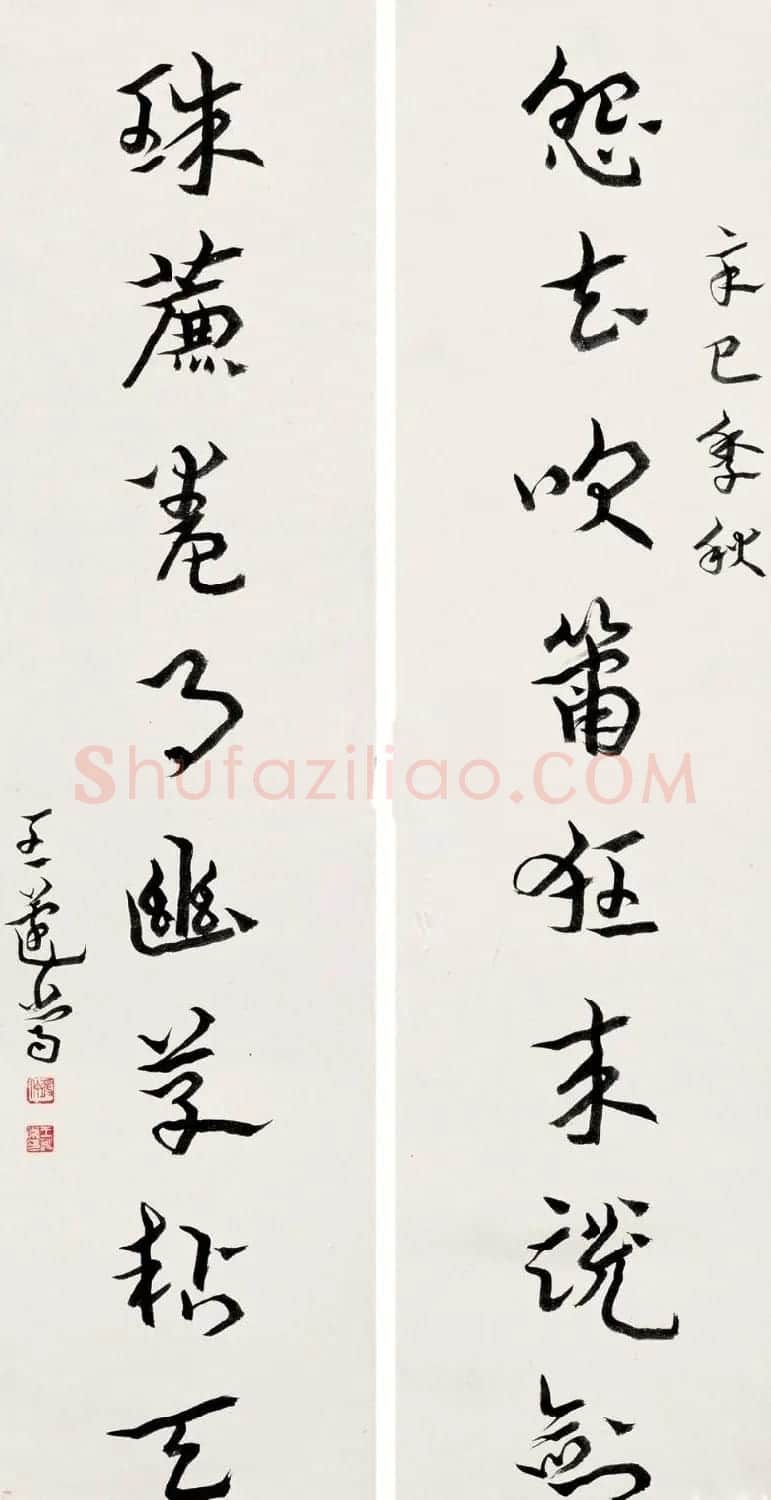 辛巳季秋
怨去吹箫狂来说剑
珠帘卷月幽草粘天
王蘧常
Shufaziliao.COM